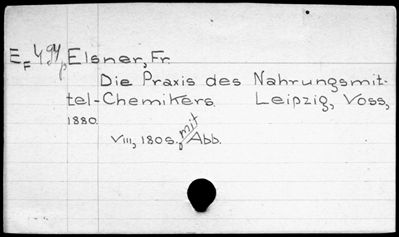 EF 494p Elsner, Fr.
Die Praxis des Nahrungsmit-
tel-Chemikers. Leipzig, Voss,
1880.
VIII, 180 S., mit Abb.